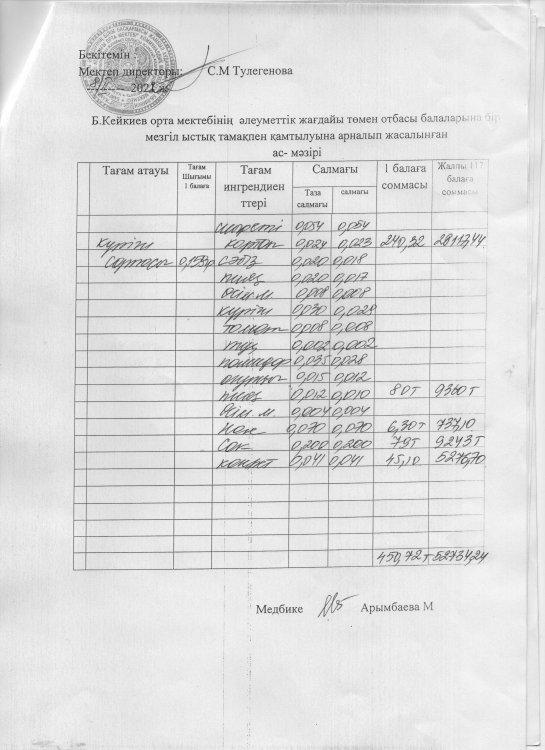 Бекітемін :
Мектеп директоры: С.М Тулегенова
Б.Кейкиев орта мектебінің әлеуметтік жағдайы төмен отбасы балаларына бір
мезгіл ыстық тамақпен қамтылуына арналып жасалынған
ас- мәзірі
Тағам атауы Тағам Шығымы 1 балаға Тағам ингрендиенттері Салмағы 1 балаға соммасы Жалпы 117 балаға соммасы
Таза салмағы салмағы
0,054 0,054
күріш картоп 0,024 0,023 240,32 28117,44
сәбіз 0,020 0,018
пияз 0,020 0,017
өсім.м 0,008 0,008
күріш 0,030 0,029
томат 0,008 0,008
тұз 0,002 0,002
помидор 0,035 0,028
огурцы 0,015 0,012
пияз 0,012 0,010 80т 9360т
өсім.м 0,004 0,004
нан 0,070 0,070 6,30т 737,10
Сок 0,200 0,200 79т 9243т
0,041 0,041 45,10 5276,70
450,72т 52734,24
Медбике Арымбаева М